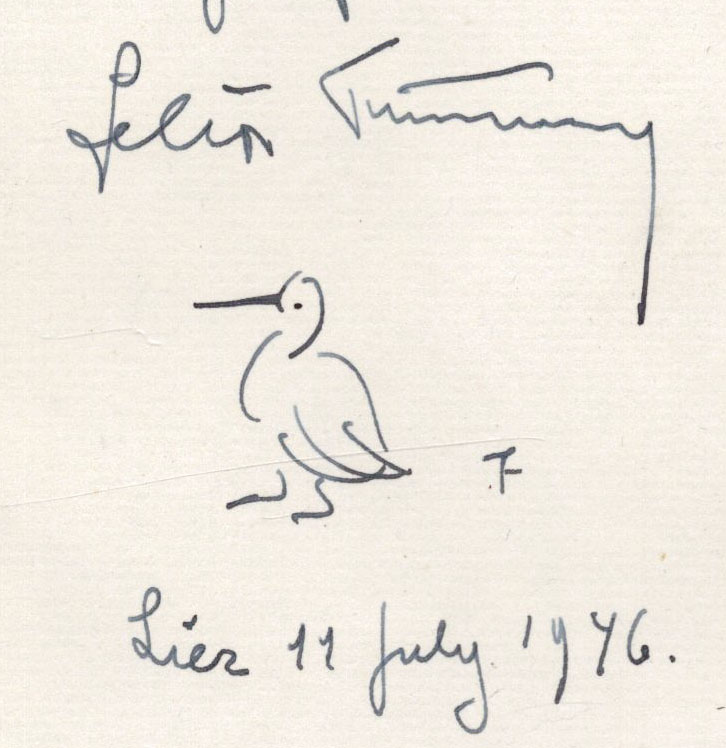 Felix Timmermans
F
Lier 11 July 1946.